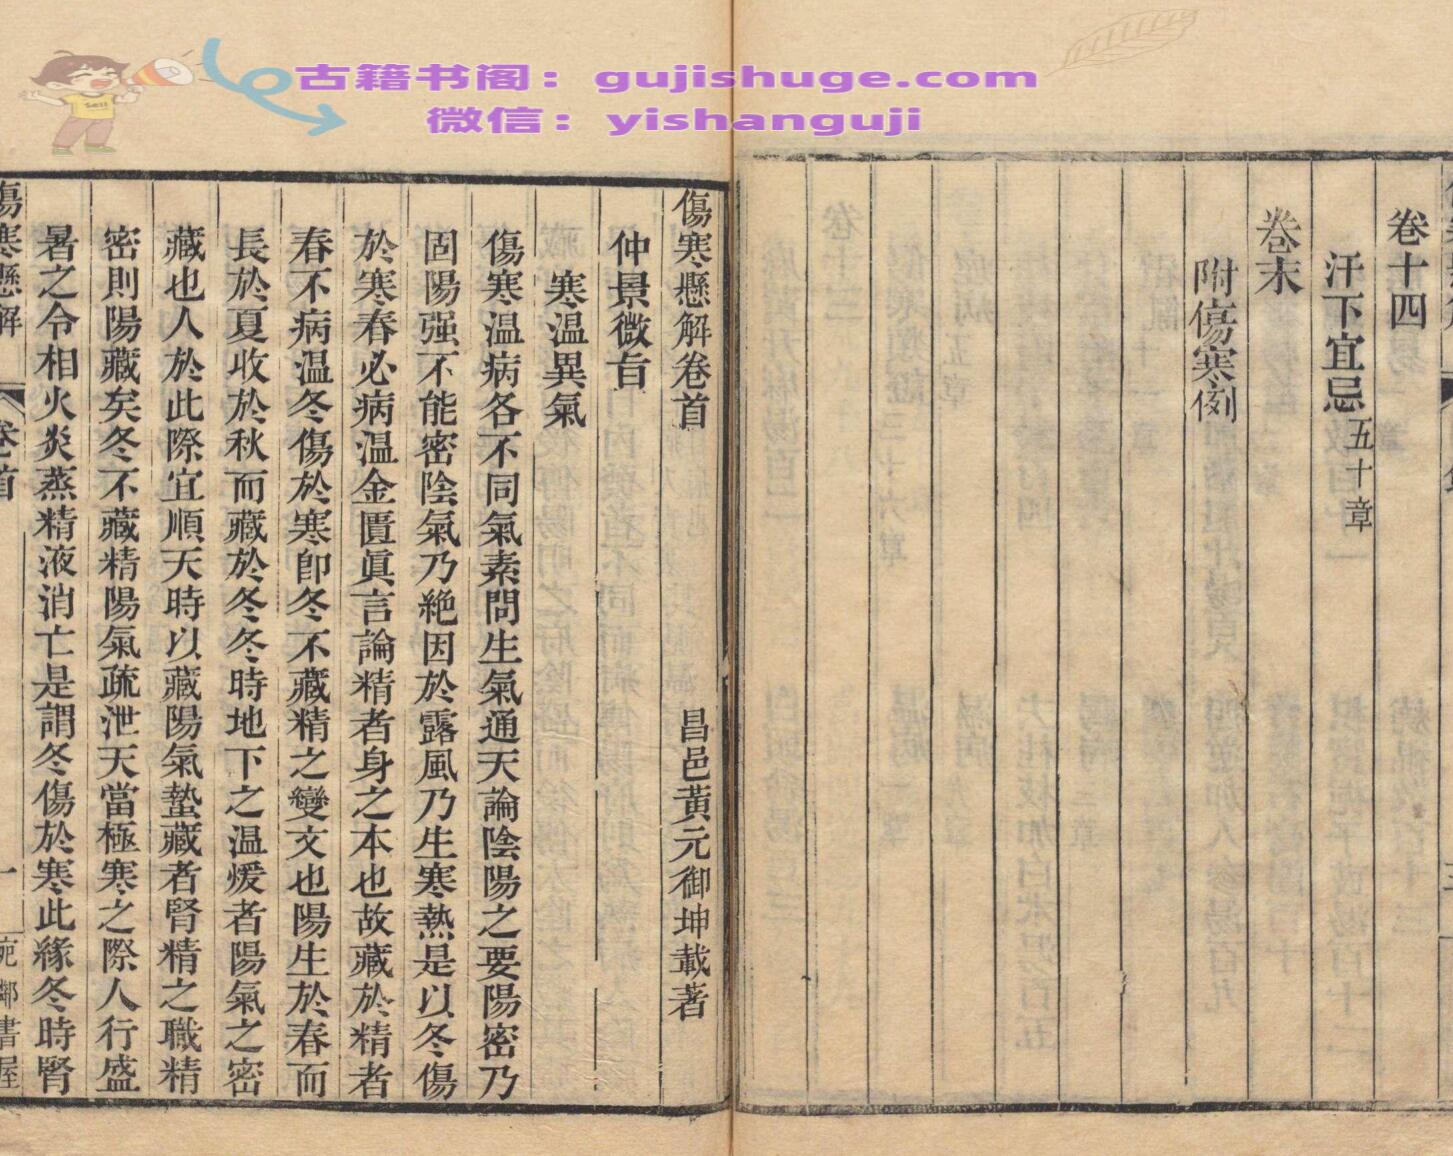 古籍书阁：gujishuge.com
微信：yishanguji
卷十四
汗下宜忌五十章
卷末
附傷寒例
傷寒懸解卷首
昌邑黃元御坤載著
仲景微旨
寒温異氣
傷寒温病各不同氣素問生氣通天論陰陽之要陽密乃
固陽强不能密陰氣乃絶因於露風乃生寒熱是以冬傷
於寒春必病温金匱眞言論精者身之本也故藏於精者
春不病温冬傷於寒卽冬不藏精之變文也陽生於春而
長於夏收於秋而藏於冬冬時地下之温煖者陽氣之密
藏也人於此際宜順天時以藏陽氣蟄藏者腎精之職精
密則陽藏矣冬不藏精陽氣疏泄天當極寒之際人行盛
暑之令相火炎蒸精液消亡是謂冬傷於寒此緣冬時腎
傷寒懸解
卷首
一
宛鄰書屋